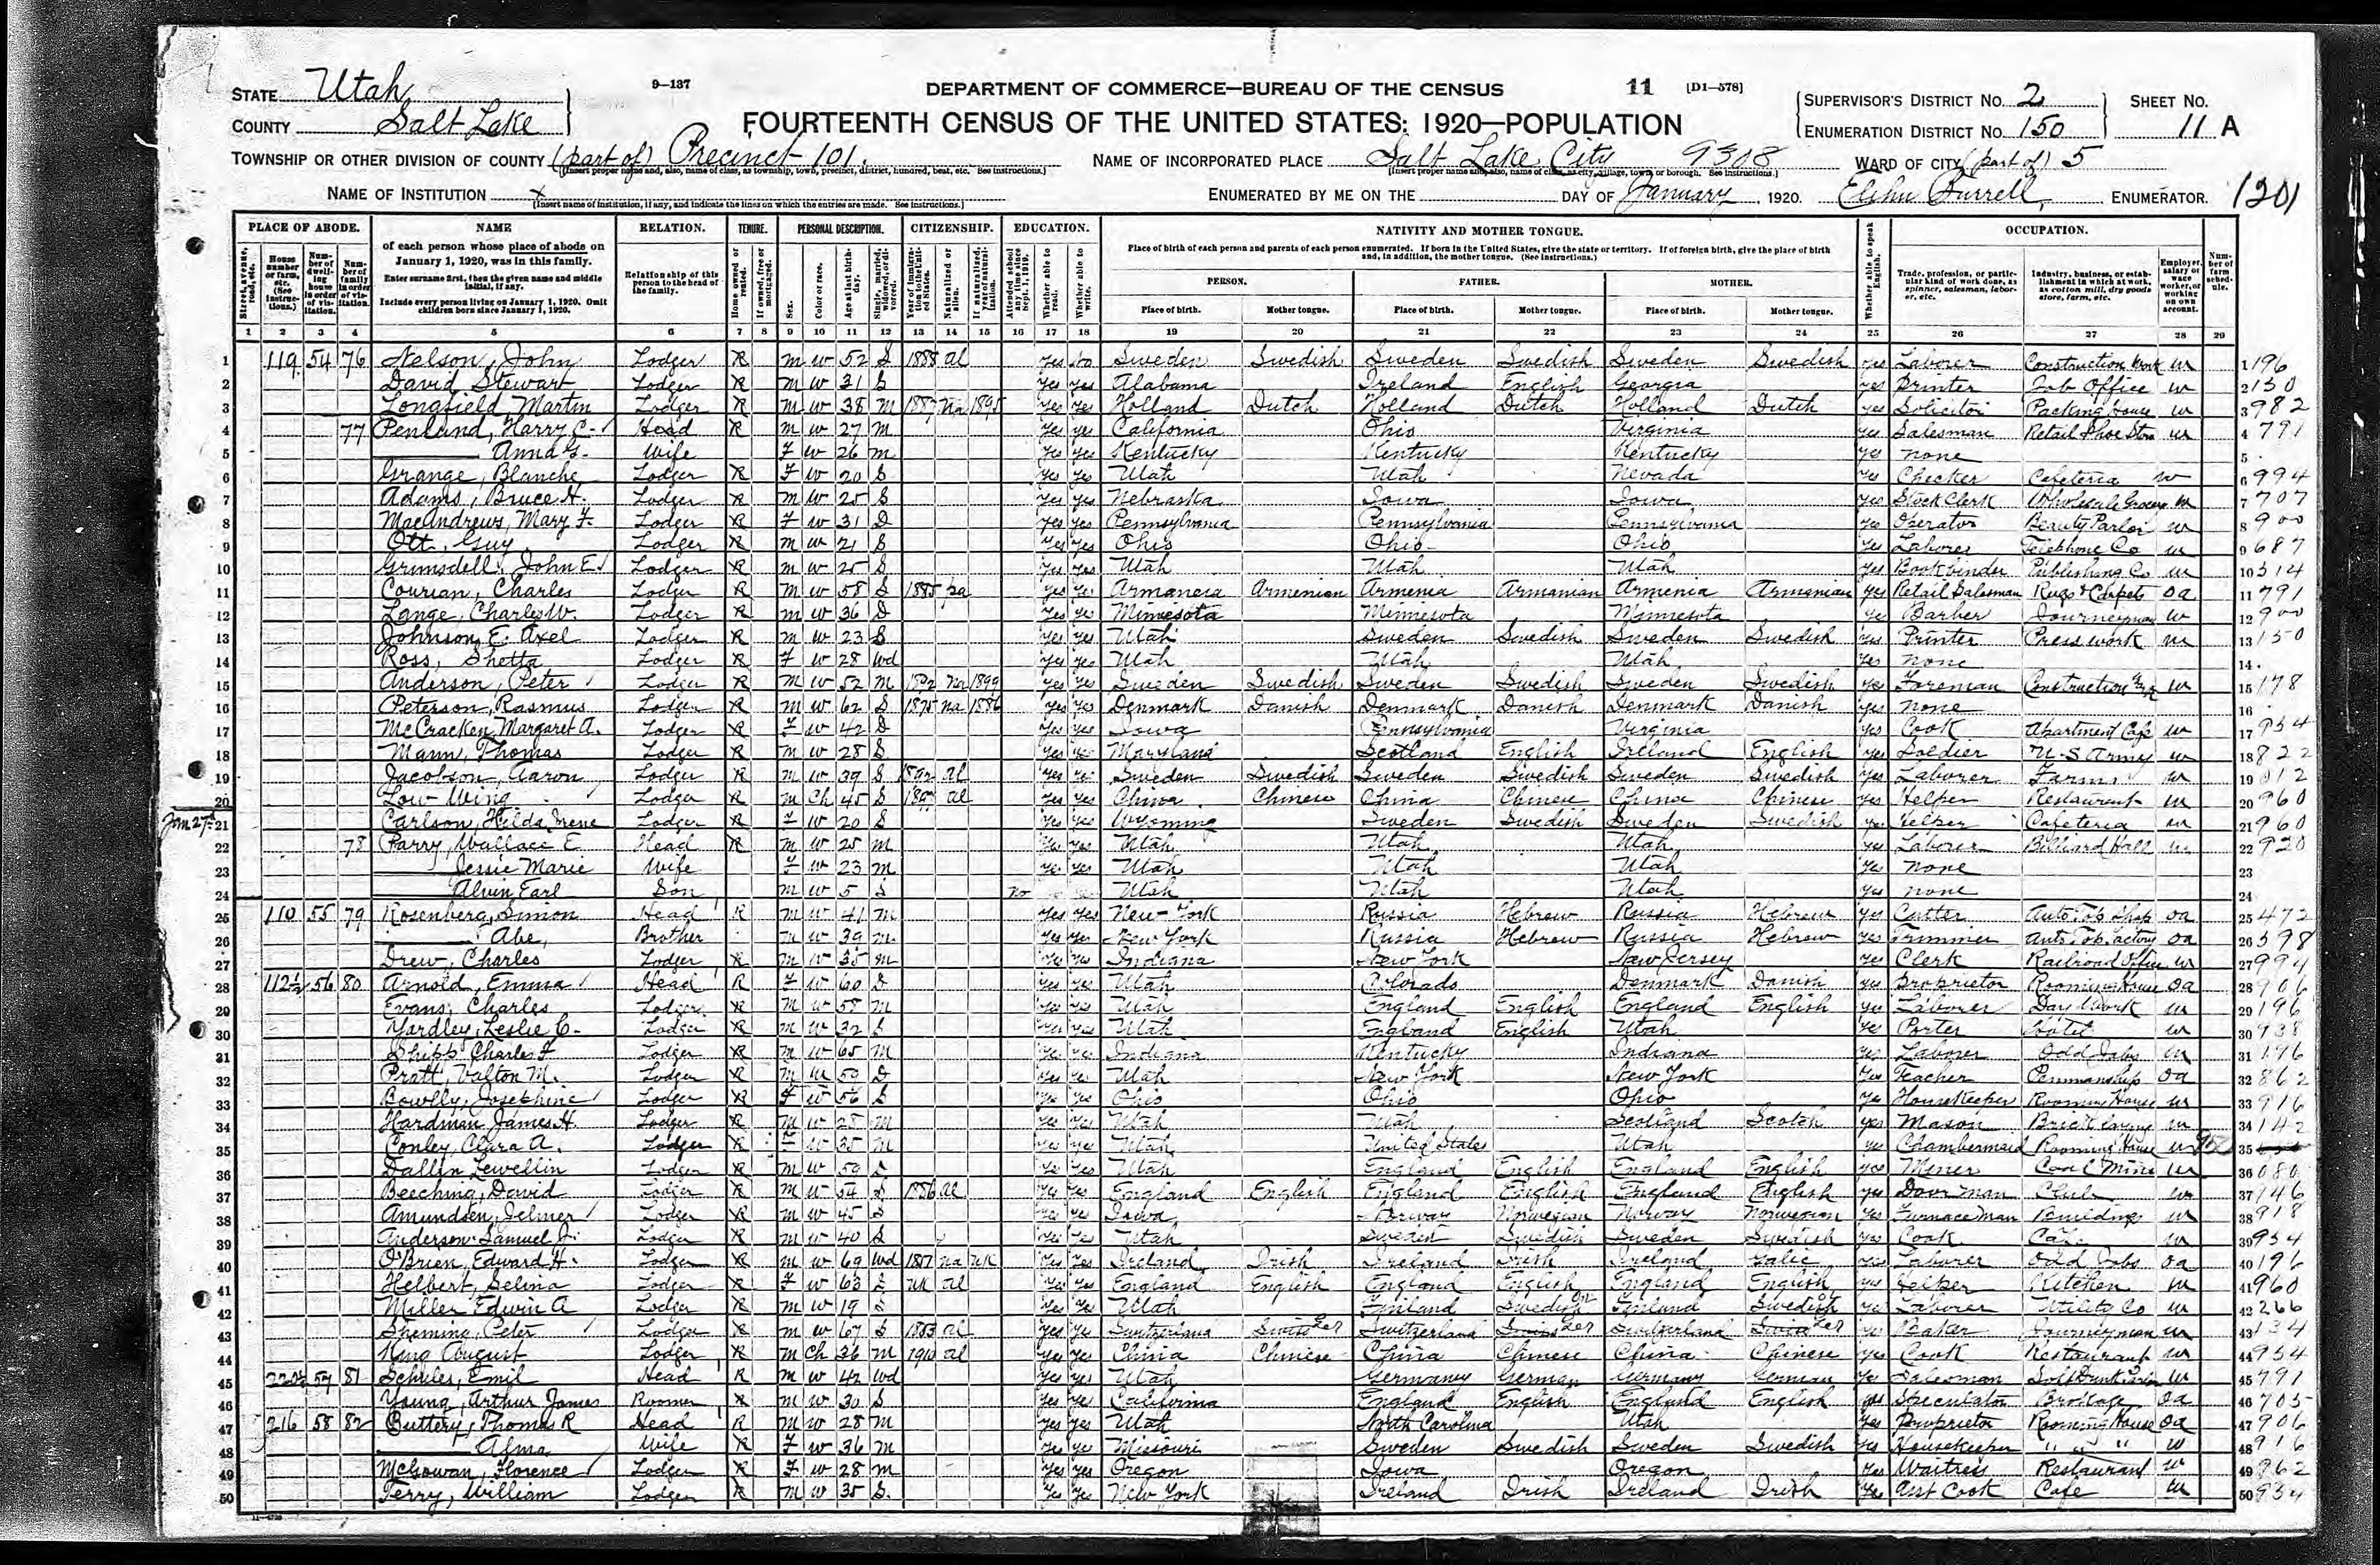 STATE Utah
COUNTY Salt Lake
9—137
DEPARTMENT OF COMMERCE—BUREAU OF THE CENSUS
11 [D1-578]
FOURTEENTH CENSUS OF THE UNITED STATES: 1920—POPULATION
SUPERVISOR'S DISTRICT NO. 2
ENUMERATION DISTRICT NO. 150
SHEET NO. 11 A
TOWNSHIP OR OTHER DIVISION OF COUNTY (part of) Precinct 101.
NAME OF INCORPORATED PLACE Salt Lake City 9308
WARD OF CITY (part of) 5
NAME OF INSTITUTION x
ENUMERATED BY ME ON THE DAY OF January, 1920. ENUMERATOR. 1201
PLACE OF ABODE. NAME RELATION. TENURE. PERSONAL DESCRIPTION. CITIZENSHIP. EDUCATION. NATIVITY AND MOTHER TONGUE. OCCUPATION.
of each person whose place of abode on January 1, 1920, was in this family.
Enter surname first, then the given name and middle initial, if any.
Include every person living on January 1, 1920. Omit children born since January 1, 1920.
Relationship of this person to the head of the family.
Place of birth of each person and parents of each person enumerated. If born in the United States, give the state or territory. If of foreign birth, give the place of birth and, in addition, the mother tongue. (See instructions.)
PERSON. FATHER. MOTHER.
Place of birth. Mother tongue. Place of birth. Mother tongue. Place of birth. Mother tongue.
1 2 3 4 5 6 7 8 9 10 11 12 13 14 15 16 17 18 19 20 21 22 23 24 25 26 27 28 29
1 119 54 76 Nelson, John Lodger R m w 52 S 1888 al Yes no Sweden Swedish Sweden Swedish Sweden Swedish yes Laborer Construction Work w 196
2 David Stewart Lodger R m w 31 S Yes Yes Alabama Ireland English Georgia yes Printer Job Office w 130
3 Longfield, Martin Lodger R m w 38 m 1887 na 1895 Yes Yes Holland Dutch Holland Dutch Holland Dutch yes Solicitor Packing House w 982
4 77 Penland, Harry C. Head R m w 27 m Yes yes California Ohio Virginia yes Salesman Retail Shoe Store w 791
5 Anna G. Wife F w 26 m Yes Yes Kentucky Kentucky Kentucky yes none
6 Grange, Blanche Lodger R F w 20 S Yes Yes Utah Utah Nevada yes Checker Cafeteria w 994
7 Adams, Bruce H. Lodger R m w 25 S Yes Yes Nebraska Iowa Iowa yes Stock Clerk Wholesale Grocery w 707
8 MacAndrews, Mary F. Lodger R F w 31 D Yes Yes Pennsylvania Pennsylvania Pennsylvania yes Operator Beauty Parlor w 900
9 Ott, Guy Lodger R m w 21 S Yes Yes Ohio Ohio Ohio yes Laborer Telephone Co w 687
10 Grimsdell, John E. Lodger R m w 25 S Yes Yes Utah Utah Utah yes Bookbinder Publishing Co w 314
11 Courian, Charles Lodger R m w 58 S 1885 pa yes Yes Armanera Armenian Armenia Armanian Armenia Armanian yes Retail Salesman Rugs & Carpets oa 791
12 Lange, Charles W. Lodger R m w 36 D Yes Yes Minnesota Minnesota Minnesota yes Barber Journeyman w 900
13 Johnson, E. Axel Lodger R m w 23 S Yes Yes Utah Sweden Swedish Sweden Swedish yes Printer Press work w 150
14 Ross, Shetta Lodger R F w 28 wd Yes Yes Utah Utah Utah Yes none
15 Anderson, Peter Lodger R m w 52 m 1892 na 1899 Yes Yes Sweden Swedish Sweden Swedish Sweden Swedish yes Foreman Construction w 178
16 Peterson, Rasmus Lodger R m w 62 S 1875 na 1886 Yes Yes Denmark Danish Denmark Danish Denmark Danish yes none
17 McCracken, Margaret A. Lodger R F w 42 D Yes yes Iowa Pennsylvania Virginia yes Cook Apartment Cafe w 954
18 Mann, Thomas Lodger R m w 28 S Yes Yes Maryland Scotland English Ireland English yes Soldier U-S Army w 822
19 Jacobson, Aaron Lodger R m w 39 S 1892 al Yes Yes Sweden Swedish Sweden Swedish Sweden Swedish yes Laborer Farms w 012
20 Low Wing Lodger R m Ch 45 S 1897 al Yes Yes China Chinese China Chinese China Chinese yes Helper Restaurant w 960
Jan 27th 21 Carlson, Hilda Irene Lodger R F w 20 S Yes Yes Wyoming Sweden Swedish Sweden Swedish yes Helper Cafeteria w 960
22 78 Parry, Wallace E Head R m w 25 m Yes yes Utah Utah Utah yes Laborer Billiard Hall w 920
23 Jessie Marie Wife F w 23 m Yes Yes Utah Utah Utah yes none
24 Alvin Earl Son m w 5 S no Utah Utah Utah yes none
25 110 55 79 Rosenberg, Simon Head R m w 41 m Yes Yes New York Russia Hebrew Russia Hebrew yes Cutter Auto Top Shop oa 472
26 Abe, Brother m w 39 m Yes Yes New York Russia Hebrew Russia Hebrew yes Trimmer Auto Top Factory oa 398
27 Drew, Charles Lodger R m w 35 m Yes Yes Indiana New York New Jersey yes Clerk Railroad Office w 994
28 112½ 56 80 Arnold, Emma Head R F w 60 D yes Yes Utah Colorado Denmark Danish yes Proprietor Rooming House oa 906
29 Evans, Charles Lodger R m w 58 m Yes Yes Utah England English England English yes Laborer Day Work w 196
30 Yardley, Leslie C. Lodger R m w 32 S Yes Yes Utah England English Utah yes Porter Hotel w 938
31 Shipp, Charles F Lodger R m w 65 m Yes Yes Indiana Kentucky Indiana yes Laborer Odd Jobs w 196
32 Pratt, Valton M. Lodger R m w 50 D Yes Yes Utah New York New York yes Teacher Penmanship oa 862
33 Bowlly, Josephine Lodger R F w 56 S Yes Yes Ohio Ohio Ohio yes Housekeeper Rooming House w 916
34 Hardman, James H. Lodger R m w 28 m Yes Yes Utah Utah Scotland Scotch yes Mason Brick laying w 142
35 Conley, Clara A. Lodger R F w 35 m Yes Yes Utah United States Utah yes Chambermaid Rooming House w
36 Dallin Lewellin Lodger R m w 59 S Yes Yes Utah England English England English yes Miner Coal Mine w 080
37 Beeching, David Lodger R m w 54 S 1886 al Yes Yes England English England English England English yes Door man Club w 146
38 Amundsen, Jelmer Lodger R m w 45 S Yes Yes Iowa Norway Norwegian Norway Norwegian yes Furnace man Building w 918
39 Anderson Samuel J. Lodger R m w 40 S Utah Sweden Swedish Sweden Swedish yes Cook Cafe w 954
40 O'Brien, Edward H. Lodger R m w 69 wd 1857 na UK Yes Yes Ireland Irish Ireland Irish Ireland Galic yes Laborer Odd Jobs oa 196
41 Helbert, Selina Lodger R F w 63 S UK al Yes Yes England English England English England English yes Helper Kitchen w 960
42 Miller Edwin A Lodger R m w 19 S Yes Yes Utah Finland Swedish Finland Swedish yes Laborer Utility Co w 266
43 Sheming, Peter Lodger R m w 67 S 1883 al Yes Yes Switzerland Switzerland Switzerland yes Baker Journeyman w 134
44 King August Lodger R m Ch 36 m 1910 al Yes Yes China Chinese China Chinese China Chinese yes Cook Restaurant w 954
45 220½ 57 81 Schules, Emil Head R m w 42 wd Yes Yes Utah Germany German Germany German yes Salesman Soft Drink w 791
46 Young, Arthur James Roomer R m w 30 S Yes Yes California England English England English yes Speculator Brokage oa 705
47 216 58 82 Buttery, Thomas R Head R m w 28 m Yes Yes Utah North Carolina Utah yes Proprietor Rooming House oa 906
48 Alma Wife R F w 36 m Yes Yes Missouri Sweden Swedish Sweden Swedish yes Housekeeper " " " w 916
49 McGowan, Florence Lodger R F w 28 m Yes Yes Oregon Iowa Oregon yes Waitress Restaurant w 962
50 Terry, William Lodger R m w 35 S. Yes Yes New York Ireland Irish Ireland Irish yes asst Cook Cafe w 954